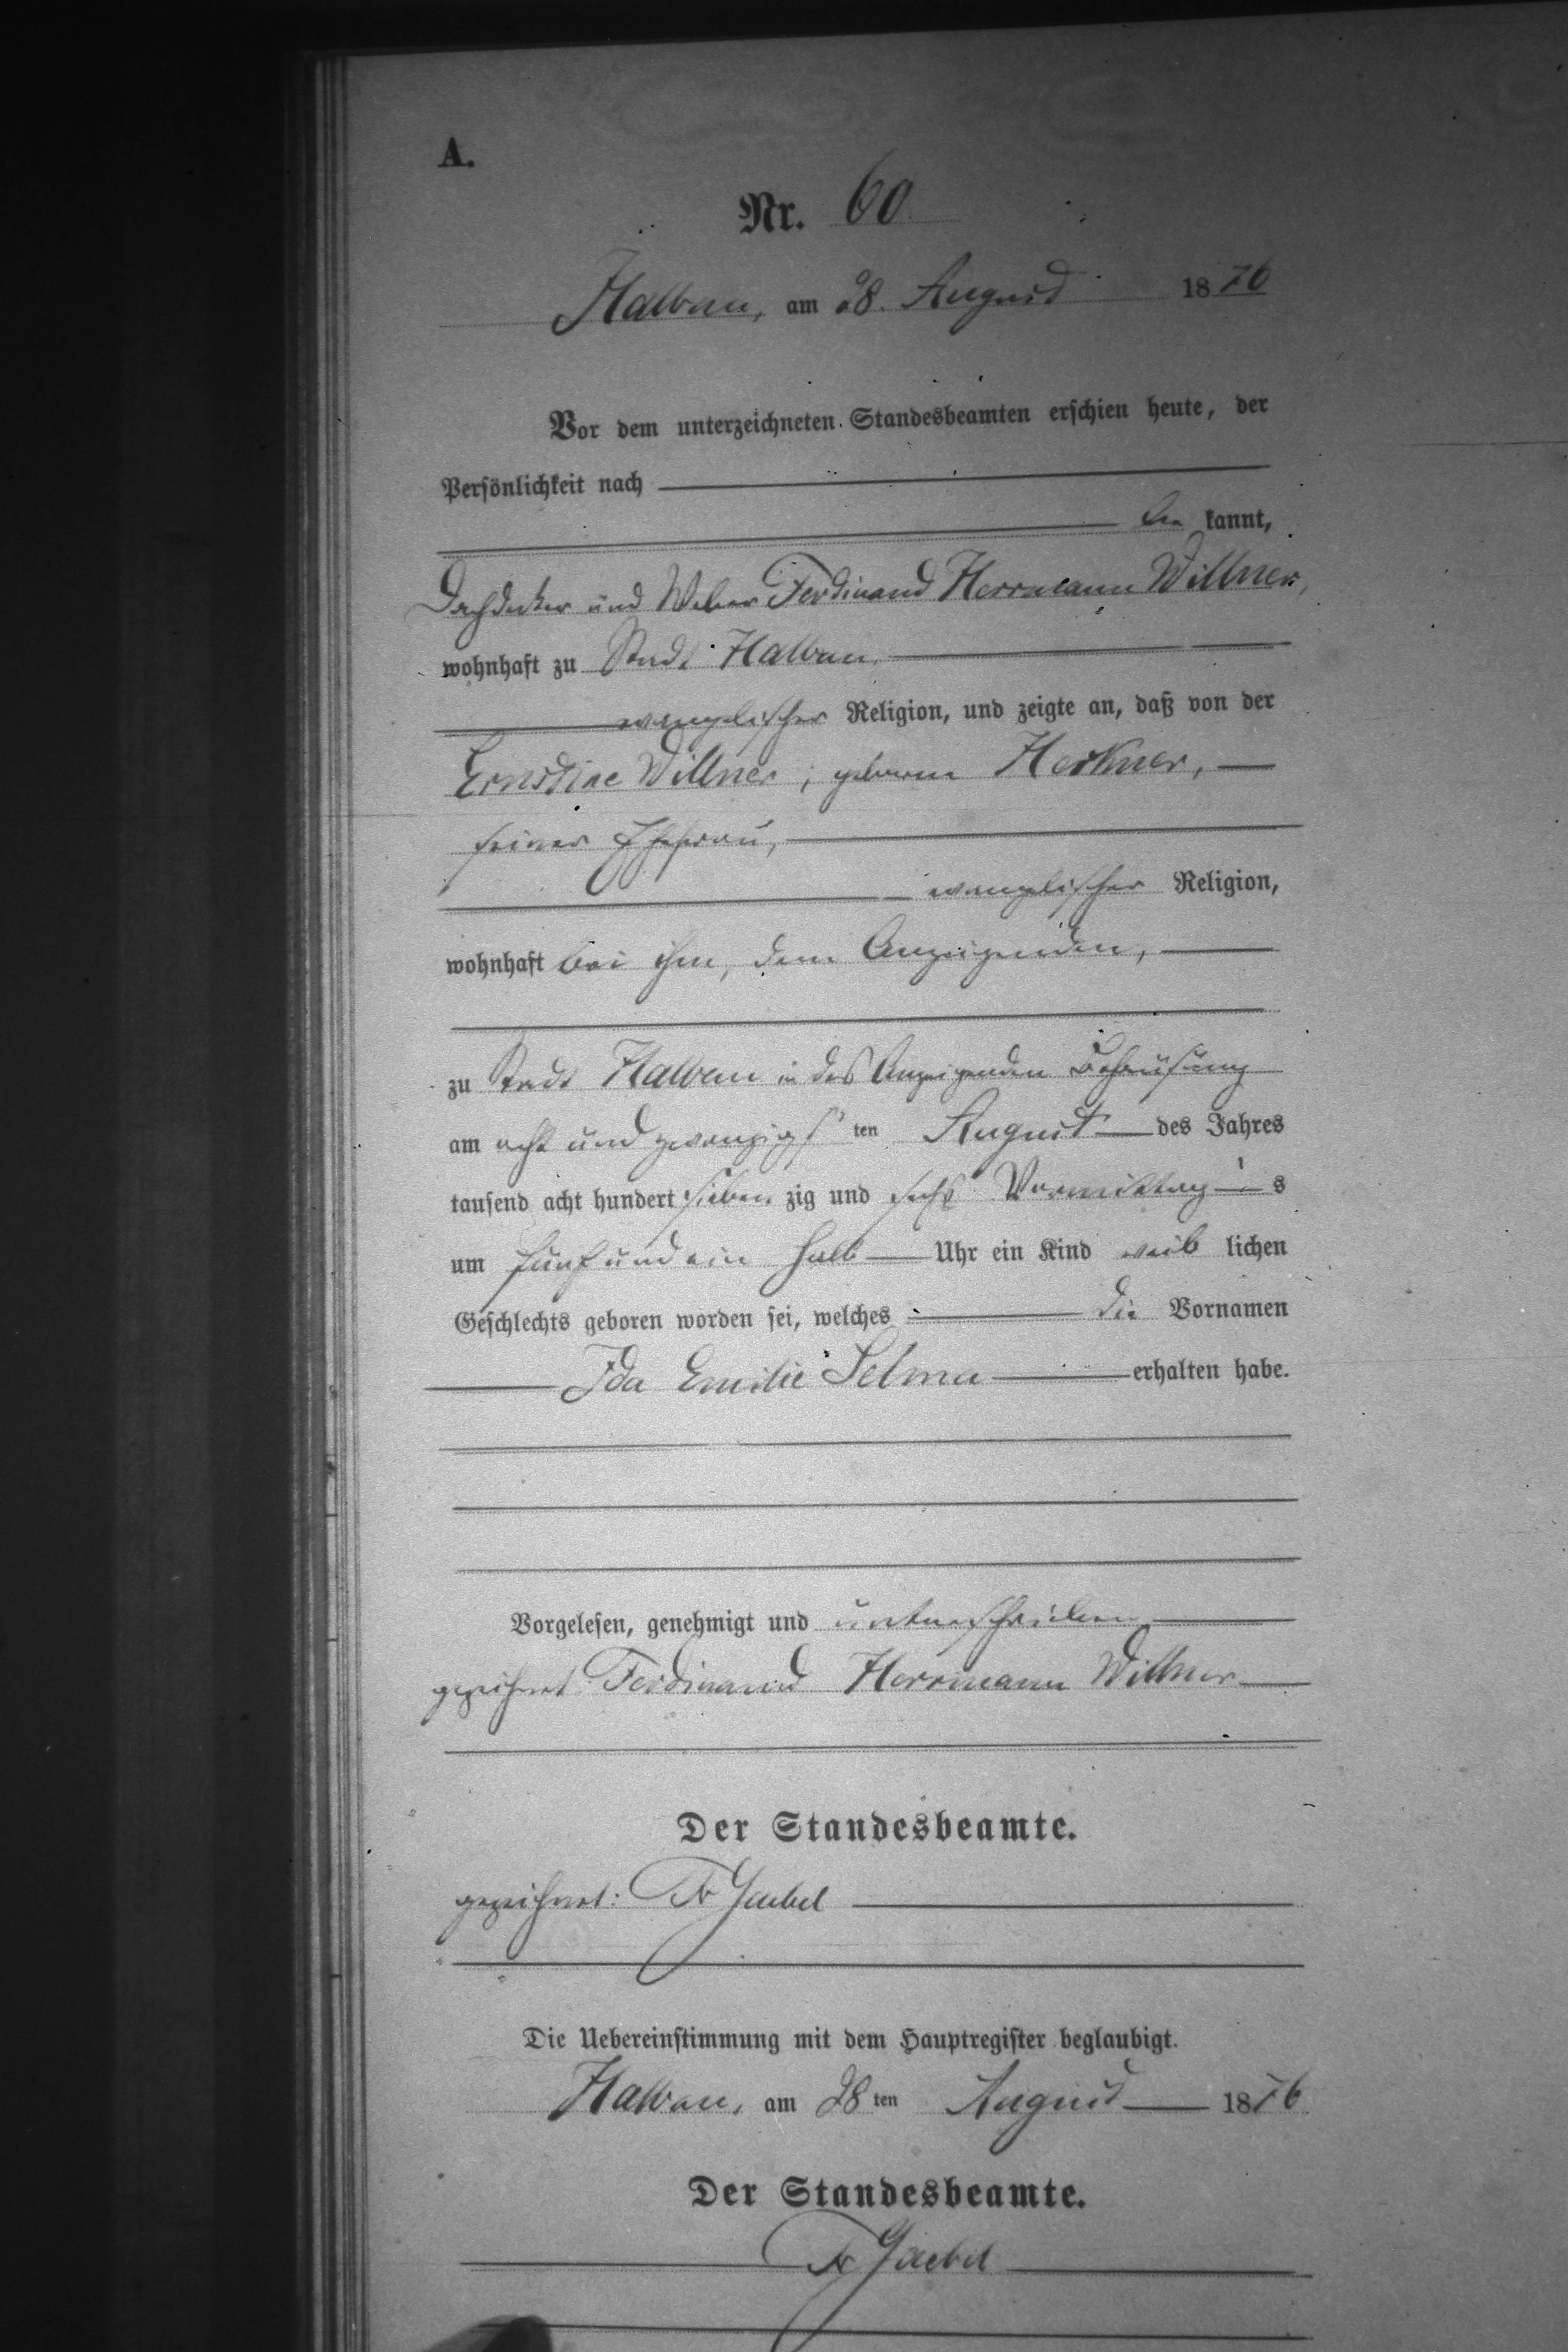 A.
Nr. 60
Halbau, am 28. August 1876
Vor dem unterzeichneten Standesbeamten erschien heute, der
Persönlichkeit nach
be kannt,
Dachdecker und Weber Ferdinand Herrmann Willner,
wohnhaft zu Stadt Halbau
evangelischer Religion, und zeigte an, daß von der
Ernstine Willner, geborene Herkner,
seiner Ehefrau,
evangelischer Religion,
wohnhaft bei ihm, dem Anzeigenden,
zu Stadt Halbau in des Anzeigenden Behausung
am acht und zwanzigsten August des Jahres
tausend acht hundert sieben zig und sechs Vormittags
um fünf und ein halb Uhr ein Kind weib lichen
Geschlechts geboren worden sei, welches die Vornamen
Ida Emilie Selma erhalten habe.
Vorgelesen, genehmigt und unterschrieben
gezeichnet Ferdinand Herrmann Willner
Der Standesbeamte.
gezeichnet: Fr
Die Uebereinstimmung mit dem Hauptregister beglaubigt.
Halbau, am 28ten August 1876
Der Standesbeamte.
Fr